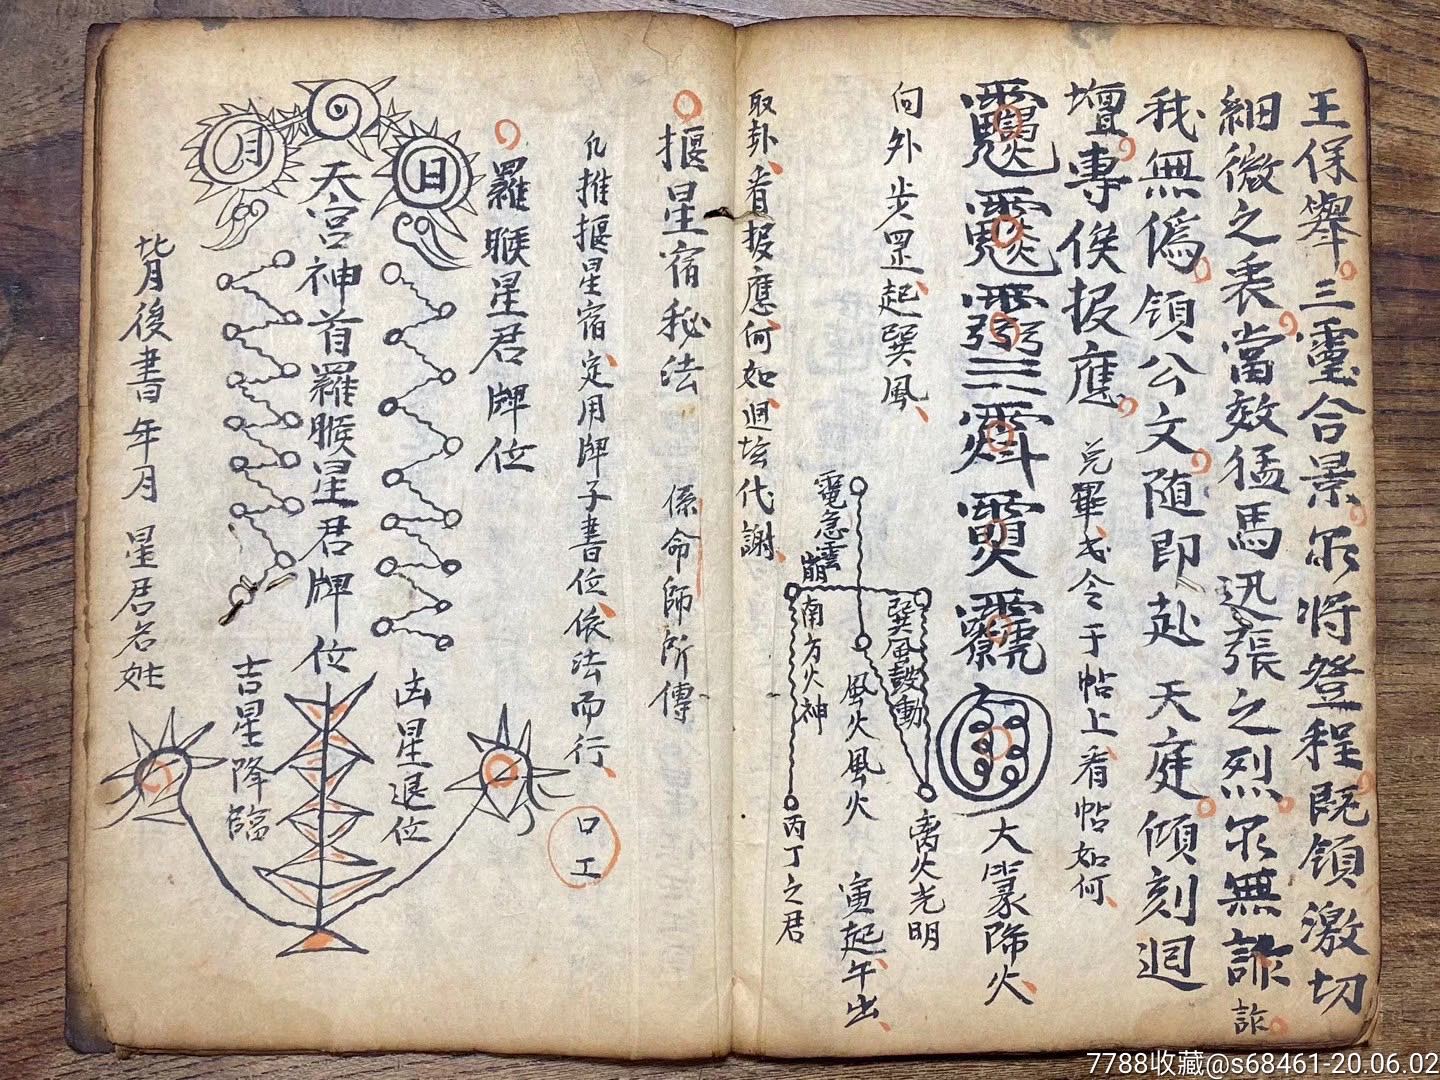 王保舉三靈合景尔將登程既領激切
細微之衷當效猛馬迅張之烈尔無詐詐
我無偽領公文随即赴 天庭傾刻迴
壇專俟报應 完畢 令于帖上看帖如何
大篆降火
向外步罡起巽風
離火光明
寅起午出
巽風鼓動
風火風火
電急雲崩
南方火神
丙丁之君
取卦看报應何如迴坛代謝
揠星宿秘法 係命師所傳
凡推揠星宿定用牌子書位依法而行
口工
羅睺星君牌位
日
月
天宫神首羅睺星君牌位
凶星退位
吉星降臨
牌後書年月 星君名姓
7788收藏@s68461-20.06.02